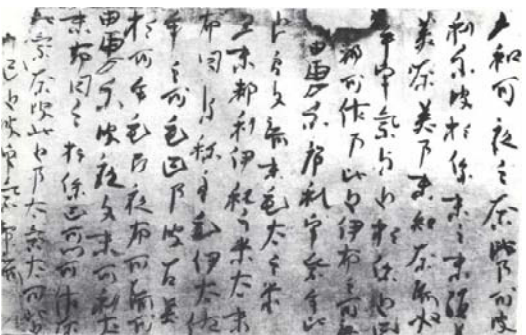 和可夜之奈比乃可波
利尓波於保末之末須
美奈美乃末知奈流奴
乎宇気与止於保止己
可都可佐乃比止伊布之可
由恵尓序礼宇気牟比
止良久流末毛太之米
弖末都利伊礼之米太末
布日与祢良毛伊太佐
牟之可毛己乃波古美
於可牟毛阿夜布可流可
由恵尓波夜久末可利太
末布日之於保己可川可佐
奈比気奈波比止乃太気太可比
己止波宇気都流